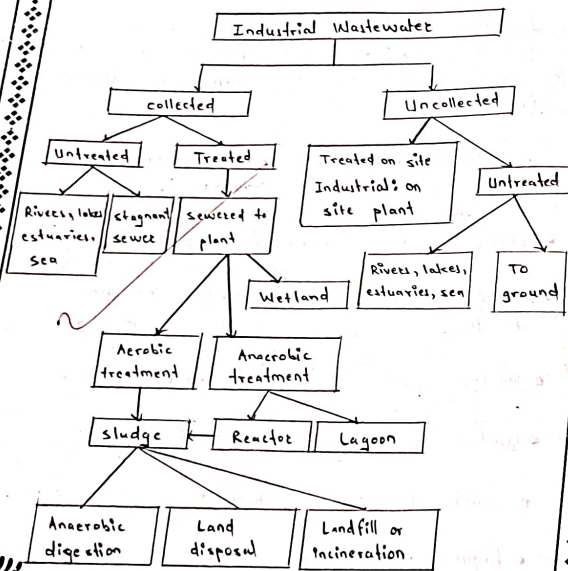 Industrial Wastewater
collected
Uncollected
Untreated
Treated
Treated on site
Industrial: on
site plant
Untreated
Rivers, lakes
estuaries,
sea
stagnant
sewer
sewered to
plant
Rivers, lakes,
estuaries, sea
To
ground
Wetland
Aerobic
treatment
Anaerobic
treatment
sludge
Reactor
Lagoon
Anaerobic
digestion
Land
disposal
Landfill or
incineration